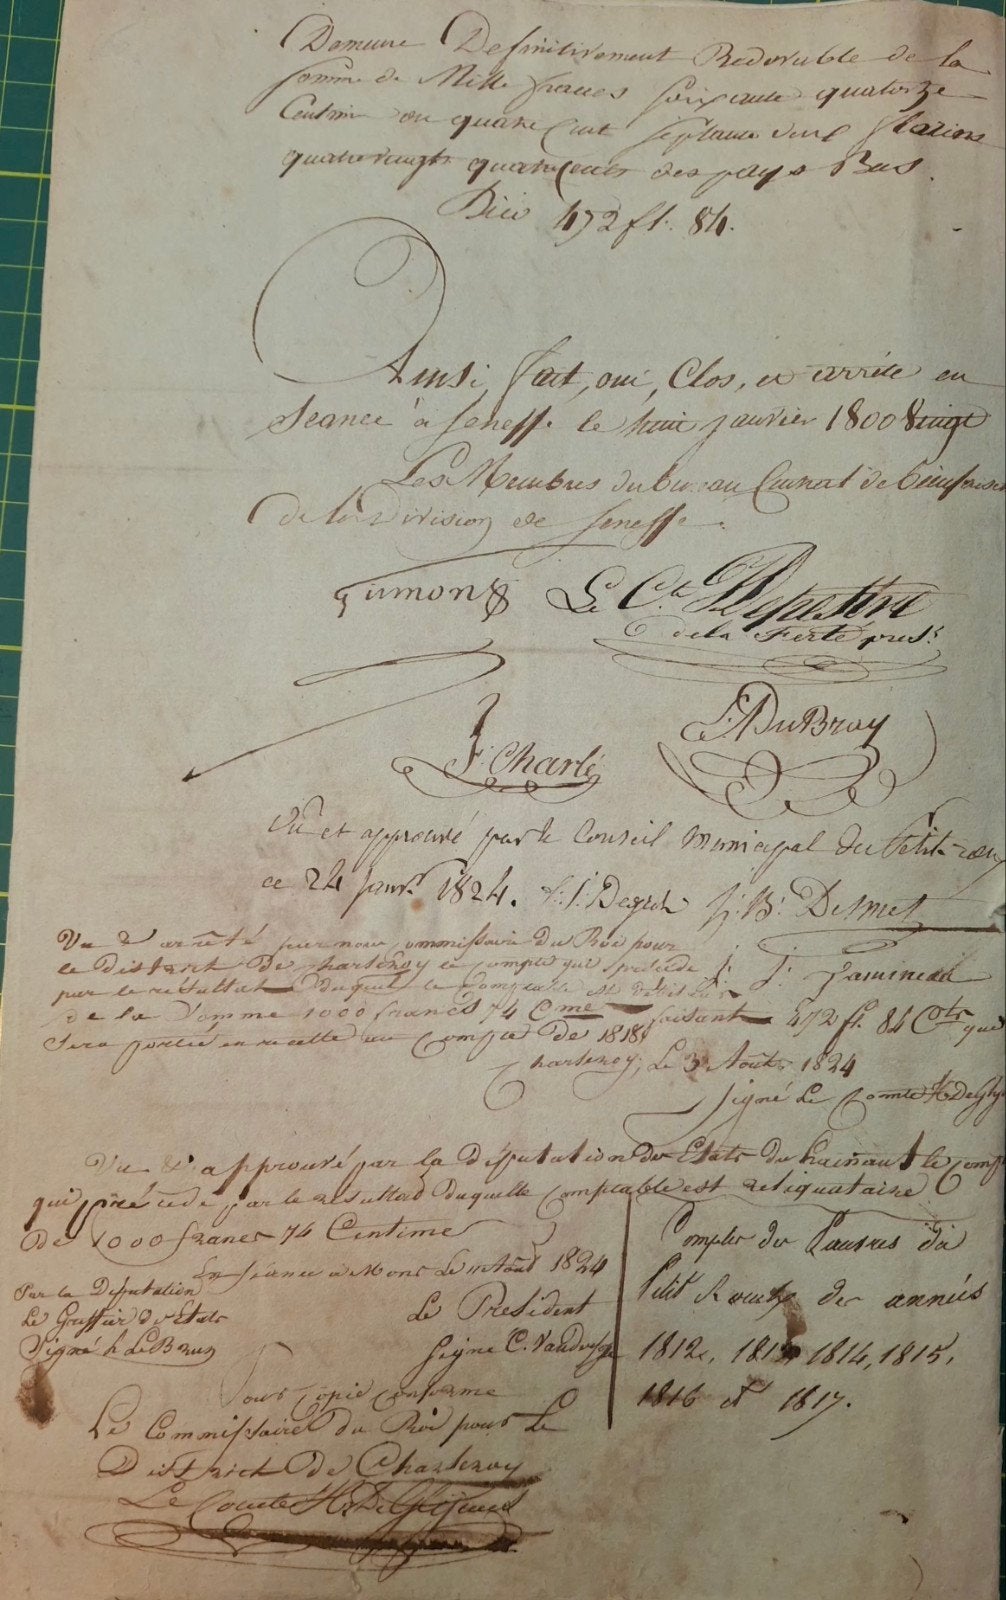 Demeure Definitivement Redevable de la
somme de Mille francs soixante quatorze
Centimes ou quatre Cent septante deux florins
quatre vingts quatre Cents des pays Bas.
Dico 472 fl. 84.
Ainsi fait, oui, Clos, et arrêté en
Seance à Seneffe le huit janvier 1800 Vingt
Les Membres du bureau Central de bienfaisance
de la Division de Seneffe.
Gimon Le Cte Depestre
de la Ferté prest.
F. Charle DuBray
Vu et approuvé par le Conseil Municipal du Petit-rœux
ce 24 janvr. 1824. J. B. Desmet
Vu & arrêté par nous Commissaire Du Roi pour
le District De Charleroy le Compte qui précède J. J.
par le résultat Duquel le Comptable est débiteur
de la Somme 1000 francs 74 Cmes faisant 472 fl. 84 Cts qui
Sera portée en recette au Compte De 1818
Charleroy, Le 3 Août 1824
Signé Le Comte H. de
Vu & approuvé par la Députation des Etats du hainaut le Compte
qui précède par le résultat Duquel le Comptable est reliquataire
De 1000 francs 74 Centimes
En séance à Mons Le Août 1824
Par la Députation
Le Greffier des Etats Le President
Signé LeBrun Signé C.
Pour Copie Conforme
Le Commissaire du Roi pour Le
District De Charleroy
Le Comte H.
Comptes des Pauvres du
Petit Roeulx des années
1812, 1813, 1814, 1815,
1816 et 1817.